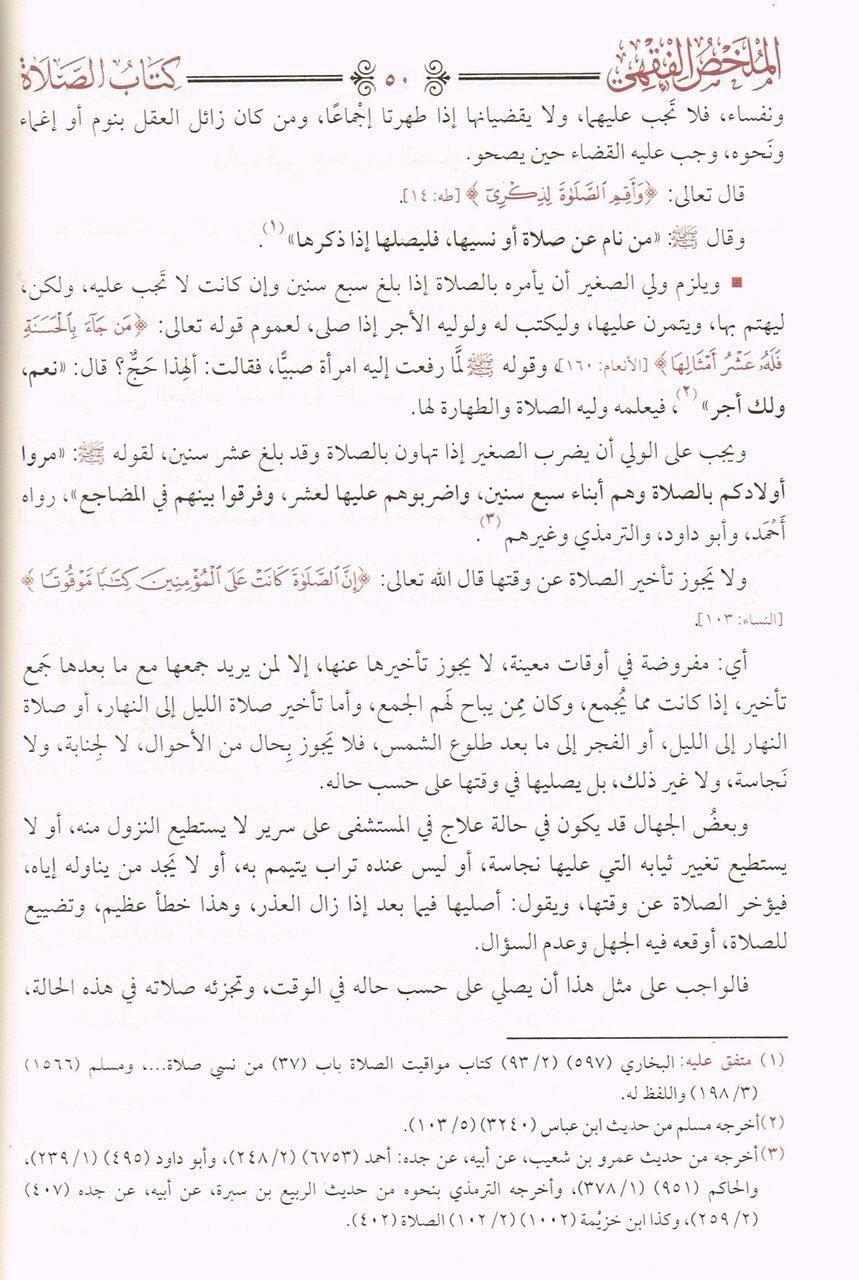 الملخص الفقهي ٥٠ كتاب الصلاة
ونفساء، فلا تَجب عليهما، ولا يقضيانها إذا طهرتا إجْماعًا، ومن كان زائل العقل بنوم أو إغماء
ونَحوه، وجب عليه القضاء حين يصحو.
قال تعالى: ﴿وَأَقِمِ ٱلصَّلَوٰةَ لِذِكْرِىٓ﴾ [طه: ١٤].
وقال ﷺ: «من نام عن صلاة أو نسيها، فليصلها إذا ذكرها» (١).
■ ويلزم ولي الصغير أن يأمره بالصلاة إذا بلغ سبع سنين وإن كانت لا تَجب عليه، ولكن،
ليهتم بها، ويتمرن عليها، وليكتب له ولوليه الأجر إذا صلى، لعموم قوله تعالى: ﴿مَن جَآءَ بِٱلْحَسَنَةِ
فَلَهُۥ عَشْرُ أَمْثَالِهَا﴾ [الأنعام: ١٦٠]، وقوله ﷺ لَمَّا رفعت إليه امرأة صبيًّا، فقالت: ألهذا حَجٌّ؟ قال: «نعم،
ولك أجر» (٢)، فيعلمه وليه الصلاة والطهارة لها.
ويجب على الولي أن يضرب الصغير إذا تهاون بالصلاة وقد بلغ عشر سنين، لقوله ﷺ: «مروا
أولادكم بالصلاة وهم أبناء سبع سنين، واضربوهم عليها لعشر، وفرقوا بينهم في المضاجع»، رواه
أَحْمَد، وأبو داود، والترمذي وغيرهم (٣).
ولا يَجوز تأخير الصلاة عن وقتها قال الله تعالى: ﴿إِنَّ ٱلصَّلَوٰةَ كَانَتْ عَلَى ٱلْمُؤْمِنِينَ كِتَٰبًا مَّوْقُوتًا﴾
[النساء: ١٠٣].
أي: مفروضة في أوقات معينة، لا يجوز تأخيرها عنها، إلا لمن يريد جمعها مع ما بعدها جَمع
تأخير، إذا كانت مما يُجمع، وكان مِمن يباح لَهم الجمع، وأما تأخير صلاة الليل إلى النهار، أو صلاة
النهار إلى الليل، أو الفجر إلى ما بعد طلوع الشمس، فلا يَجوز بِحال من الأحوال، لا لِجنابة، ولا
نَجاسة، ولا غير ذلك، بل يصليها في وقتها على حسب حاله.
وبعضُ الجهال قد يكون في حالة علاج في المستشفى على سرير لا يستطيع النزول منه، أو لا
يستطيع تغيير ثيابه التي عليها نجاسة، أو ليس عنده تراب يتيمم به، أو لا يَجد من يناوله إياه،
فيؤخر الصلاة عن وقتها، ويقول: أصليها فيما بعد إذا زال العذر، وهذا خطأ عظيم، وتضييع
للصلاة، أوقعه فيه الجهل وعدم السؤال.
فالواجب على مثل هذا أن يصلي على حسب حاله في الوقت، وتجزئه صلاته في هذه الحالة،
(١) متفق عليه: البخاري (٥٩٧) (٢/ ٩٣) كتاب مواقيت الصلاة باب (٣٧) من نسي صلاة...، ومسلم (١٥٦٦)
(٣/ ١٩٨) واللفظ له.
(٢)أخرجه مسلم من حديث ابن عباس (٣٢٤٠) (٥/ ١٠٣).
(٣)أخرجه من حديث عمرو بن شعيب، عن أبيه، عن جده: أحمد (٦٧٥٣) (٢/ ٢٤٨)، وأبو داود (٤٩٥) (١/ ٢٣٩)،
والحاكم (٩٥١) (١/ ٣٧٨)، وأخرجه الترمذي بنحوه من حديث الربيع بن سبرة، عن أبيه، عن جده (٤٠٧)
(٢/ ٢٥٩)، وكذا ابن خزيْمة (١٠٠٢) (٢/ ١٠٢) الصلاة (٤٠٢).